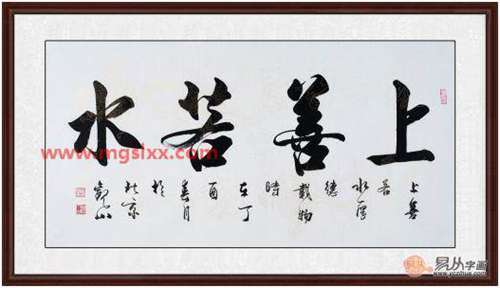 上善若水
上善
若
水厚
德
載物
時
在丁
酉
春月
於
北京
www.mgsixx.com
易从字画